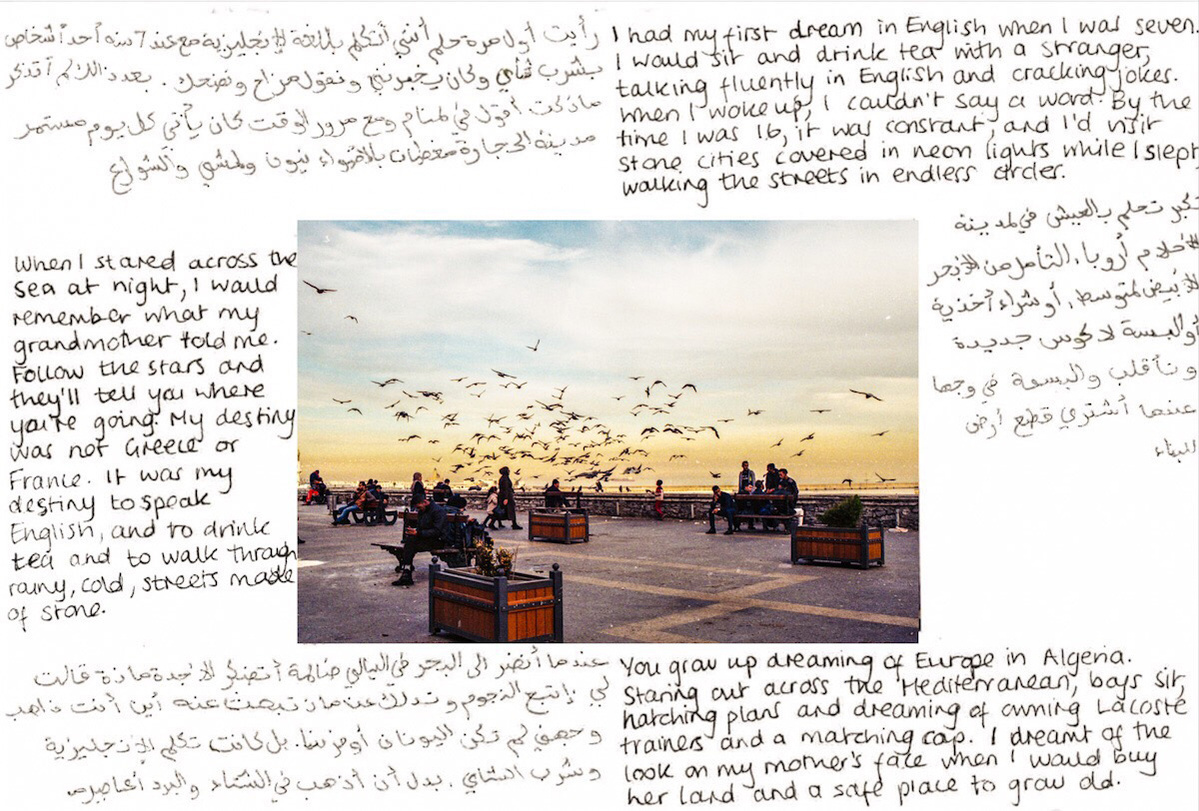 رأيت أول مرة حلم أنني أتكلم باللغة الإنجليزية مع عند 7 سنه أحد أشخاص
بشرب شاي وكان يخبرني ونقول مزاح ونضحك . بعد ذالك لم أتذكر
ماذ كنت أقول في المنام ومع مرور الوقت كان يأتي كل يوم مستمر
مدينة الى حجارة مغطات بالأضواء نيون ولمشي والشوارع
I had my first dream in English when I was seven.
I would sit and drink tea with a stranger,
talking fluently in English and cracking jokes.
When I woke up, I couldn't say a word. By the
time I was 16, it was constant, and I'd visit
stone cities covered in neon lights while I slept,
walking the streets in endless circles.
When I stared across the
sea at night, I would
remember what my
grandmother told me.
Follow the stars and
they'll tell you where
you're going. My destiny
was not Greece or
France. It was my
destiny to speak
English, and to drink
tea and to walk through
rainy, cold, streets made
of stone.
تكبر تحلم بالعيش في لمدينة
الأحلام أروبا. التأمل من الأبحر
الأبيض لمتوسط. أو شراء أحذية
أو ألبسة لاكوس جديدة
و نأقلب والبسمة في وجها
عندما أشتري قطع أرض
للبناء
عندما أنضر الى البحر في اليالي ضالمة أتضكر لا جدة ماذة قالت
لي إتبع النجوم و تدلك عن مان تبحث عنه أين أنت ذاهب
و جهتي لم تكن اليونان أو فرنسا. بل كانت تكلم الإنجليزية
وشرب الشاي . بدل أن أذهب في الشتاء والبرد أعاصير
You grow up dreaming of Europe in Algeria.
Staring out across the Mediterranean, boys sit,
hatching plans and dreaming of owning Lacoste
trainers and a matching cap. I dreamt of the
look on my mother's face when I would buy
her land and a safe place to grow old.